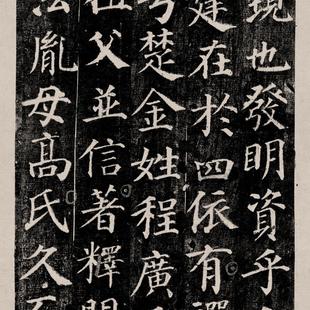 現也發明資乎
建在於四依有禪
号楚金姓程廣
祖父並信著釋門
法胤母髙氏久